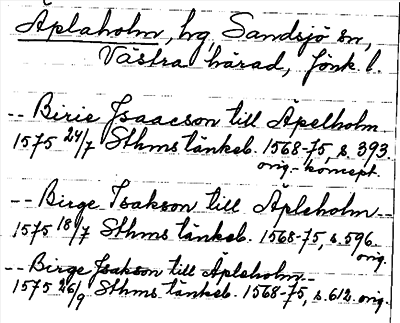 Äplaholm, hg Sandsjö sn,
Västra härad, Jönk. l.
-- Birie Jsaacson till Äpelholm.
1575 24/7 Sthms tänkeb. 1568-75, s. 393
orig.-koncept.
-- Birge Isakson till Äpleholm --
1575 18/7 Sthms tänkeb. 1568-75, s. 596
orig.
-- Birge Jsakson till Äpleholm --
1575 26/9 Sthms tänkeb. 1568-75, s. 612 orig.